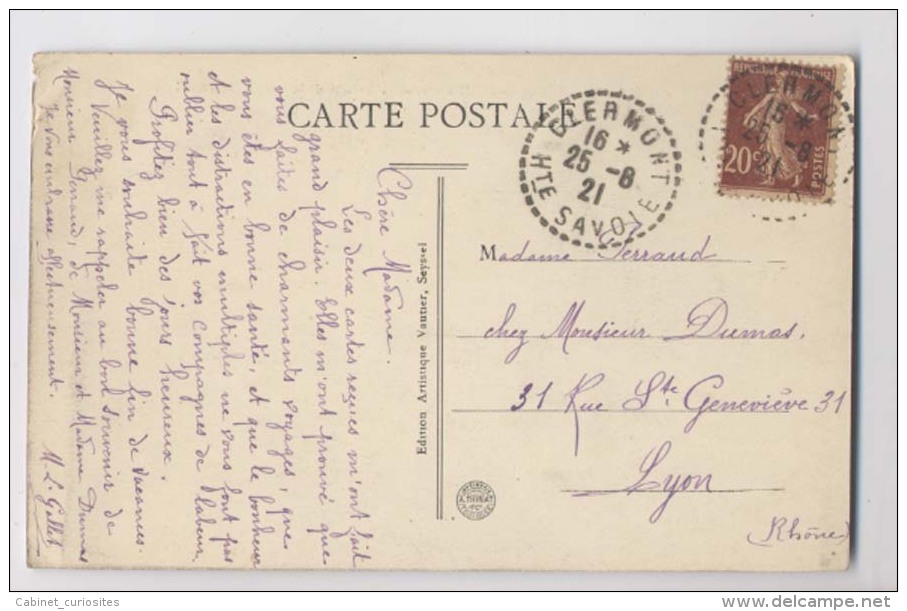 CARTE POSTALE
Chère Madame.
Les deux cartes reçues m'ont fait
grand plaisir. Elles m'ont prouvé que
vous faites de charmants voyages, que
vous êtes en bonne santé, et que le bonheur
et les distractions multiples ne vous font pas
oublier tout à fait vos compagnes de labeur.
Profitez bien des jours heureux.
Je vous souhaite bonne fin de vacances.
Veuillez me rappeler au bon souvenir de
Monsieur Ferraud, de Monsieur et Madame Dumas
Je vous embrasse affectueusement.
M. L. Gillet
Edition Artistique Vautier, Seyssel
CLERMONT
16 *
25 -8
21
HTE SAVOIE
CLERMONT
15 *
25 -8
21
20c
POSTES
Madame Ferraud
chez Monsieur Dumas.
31 Rue Ste Geneviève 31
Lyon
(Rhône)
Cabinet_curiosites
delcampe.net